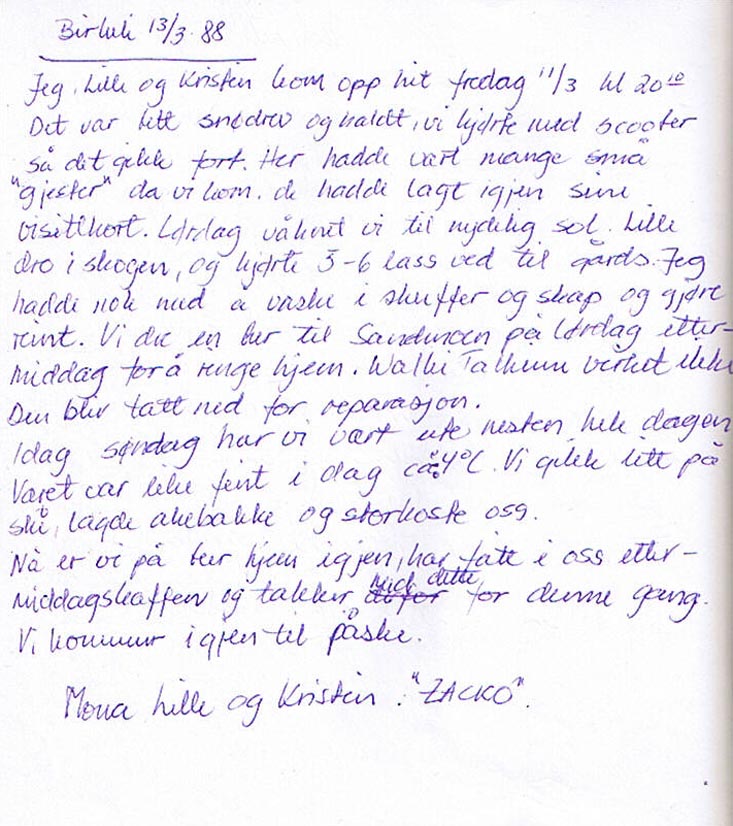 Birkeli 13/3-88
Jeg, Lille og Kristin kom opp hit fredag 11/3 kl 20¹⁰
Det var lett snødrev og kaldt, vi kjørte med scooter
så det gikk fort. Her hadde vært mange små
"gjester" da vi kom. de hadde lagt igjen sine
visittkort. Lørdag våknet vi til nydelig sol. Lille
dro i skogen, og kjørte 5-6 lass ved til gårds. Jeg
hadde nok med å vaske i skuffer og skap og gjøre
reint. Vi dro en tur til Sandmoen på Lørdag etter-
middag for å ringe hjem. Walki Talkien virket ikke
Den blir tatt ned for reparasjon.
Idag søndag har vi vært ute nesten hele dagen
Været var like fint i dag ca 4°C. Vi gikk litt på
ski, lagde akebakke og storkoste oss.
Nå er vi på tur hjem igjen, har fått i oss etter-
middagskaffen og takker med dette for denne gang.
Vi kommer igjen til påske.
Mona Lille og Kristin. "ZACKO".